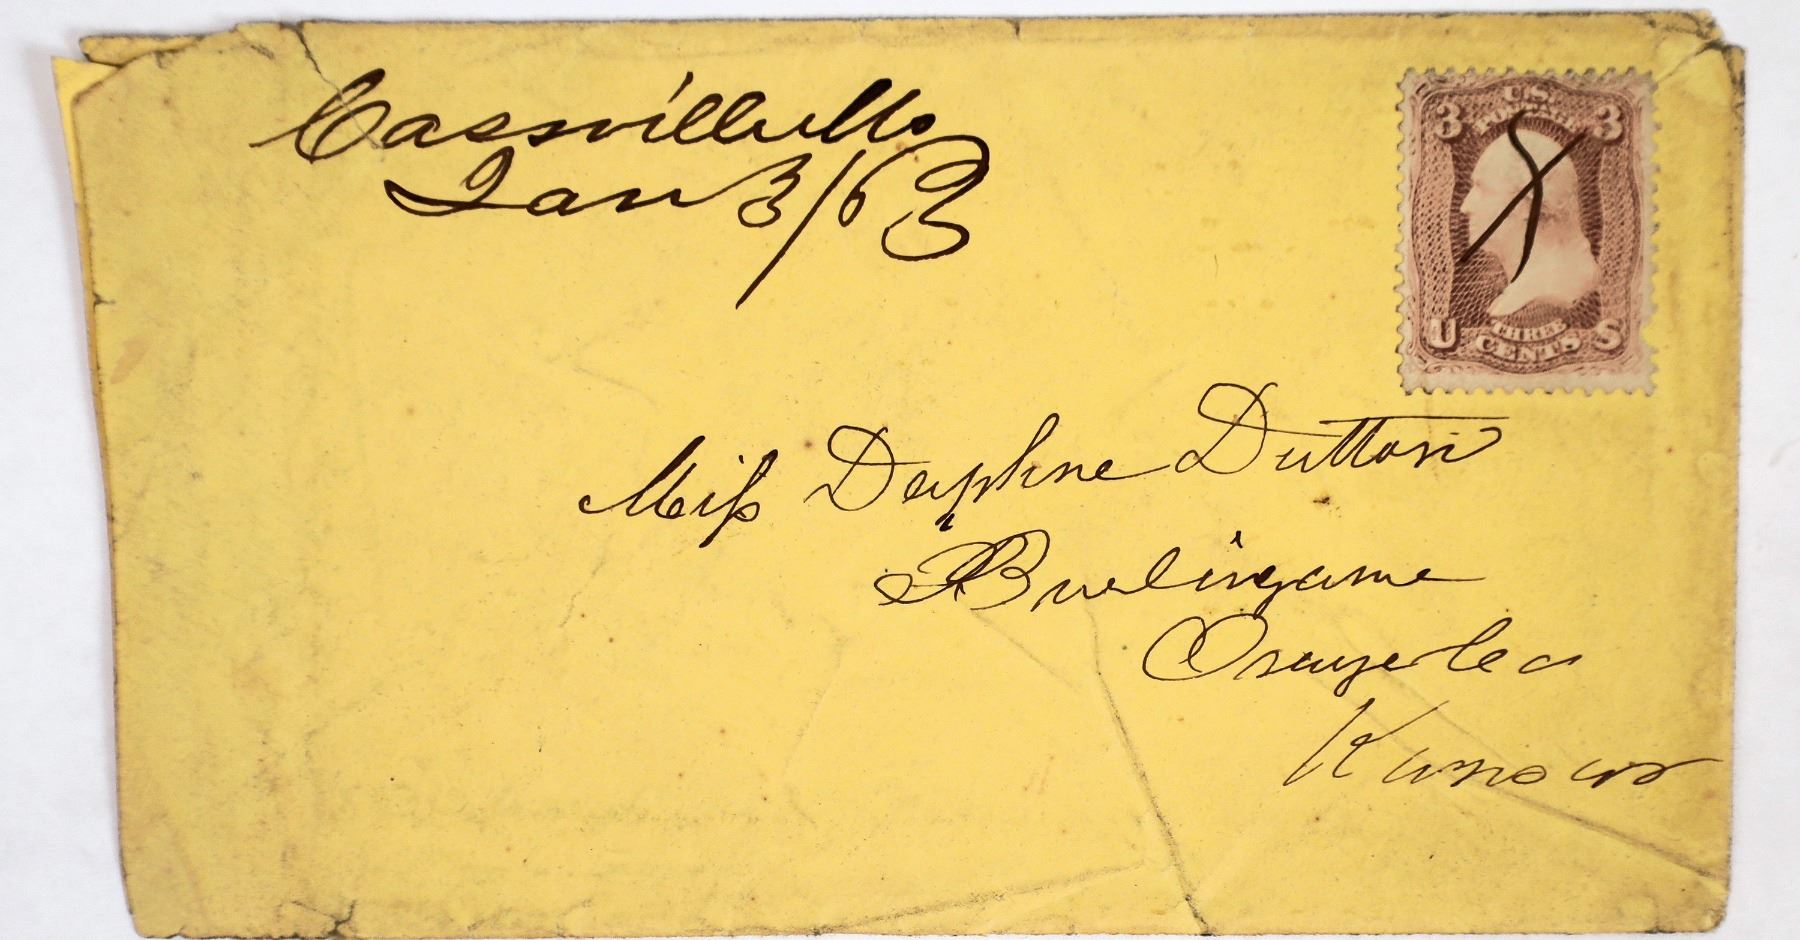 Cassville Mo
Jan 3/63
3 U.S. 3
POSTAGE
U THREE S
CENTS
Miss Daphne Dutton
Burlingame
Osage Co
Kansas